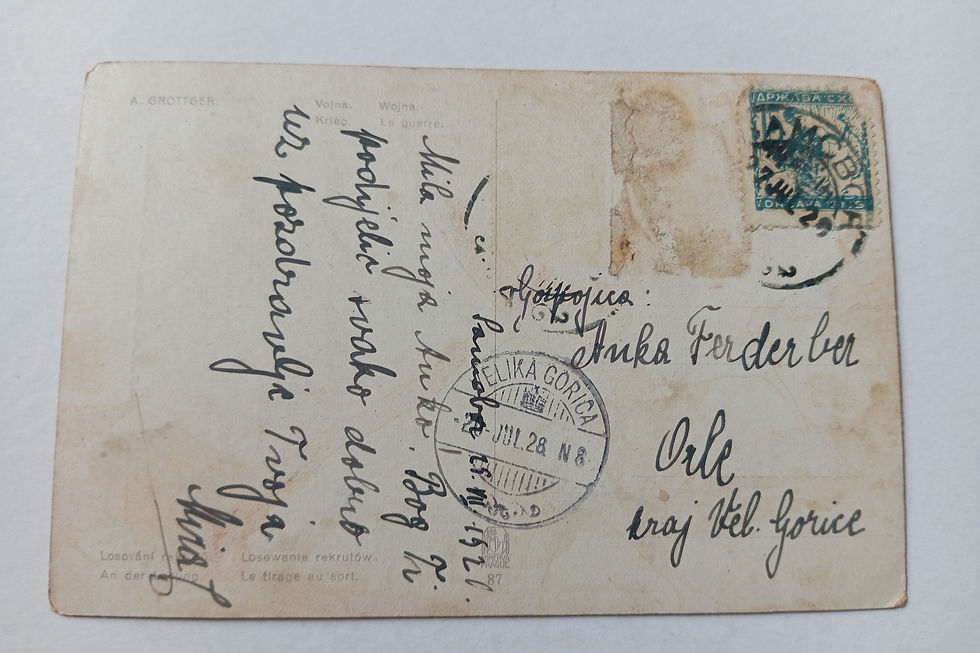 A. GROTTGER:
Vojna. Wojna.
Krieg. La guerre.
ДРЖАВА СХ
DRŽAVA S.H.S
Samobor
Mila moja Anko. Bog Ti
podijelio svako dobro
uz pozdravlje Tvoja
Gospojica:
Anka Ferderber
Orle
kraj Vel. Gorice
VELIKA GORICA
JUL. 28 N 8
Losování
Losowanie rekrutów.
An der
Le tirage au sort.
MINERVA
PRAGUE
87